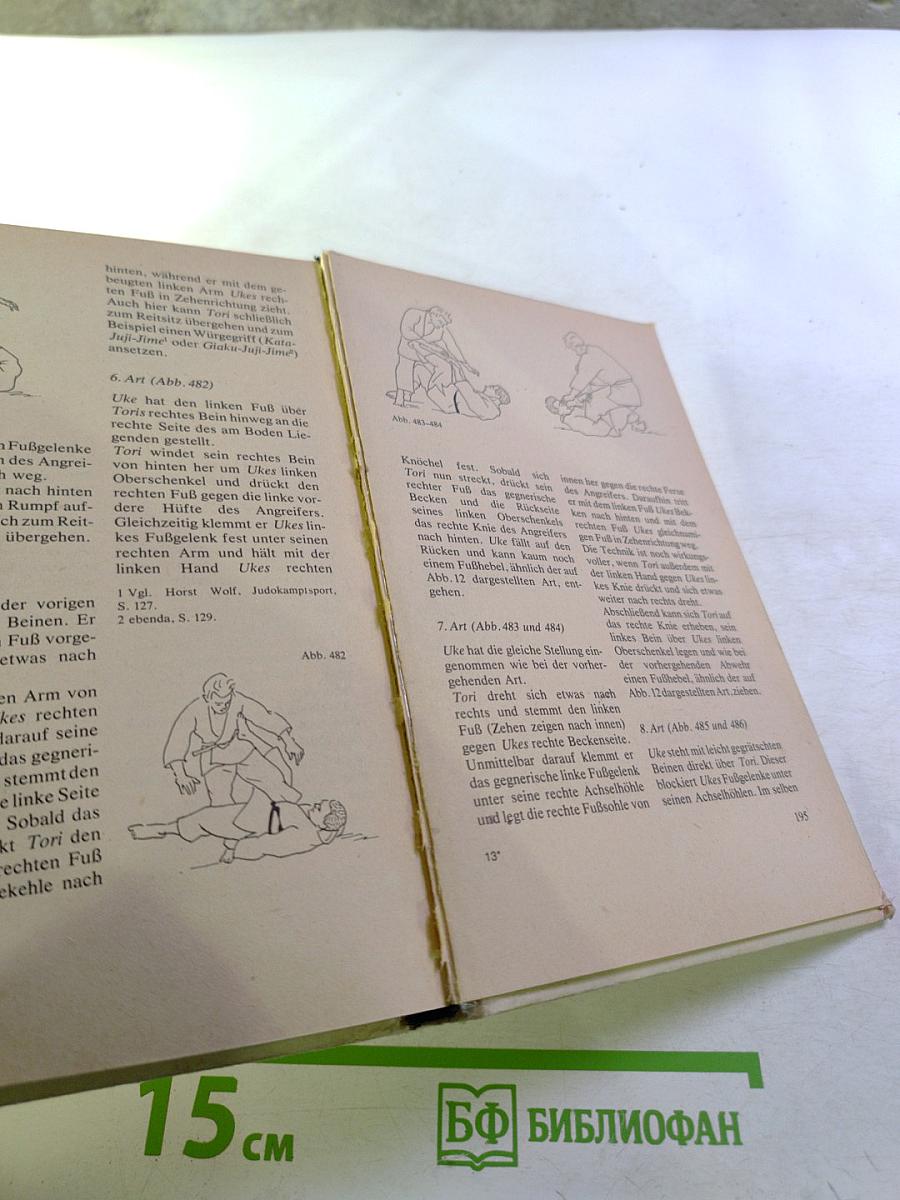 n Fußgelenke
n des Angrei-
h weg.
nach hinten
n Rumpf auf-
ch zum Reit-
übergehen.
der vorigen
Beinen. Er
n Fuß vorge-
etwas nach
en Arm von
kes rechten
darauf seine
das gegneri-
stemmt den
e linke Seite
Sobald das
kt Tori den
rechten Fuß
ekehle nach
hinten, während er mit dem ge-
beugten linken Arm Ukes rech-
ten Fuß in Zehenrichtung zieht.
Auch hier kann Tori schließlich
zum Reitsitz übergehen und zum
Beispiel einen Würgegriff (Kata-
Juji-Jime¹ oder Giaku-Juji-Jime²)
ansetzen.
6. Art (Abb. 482)
Uke hat den linken Fuß über
Toris rechtes Bein hinweg an die
rechte Seite des am Boden Lie-
genden gestellt.
Tori windet sein rechtes Bein
von hinten her um Ukes linken
Oberschenkel und drückt den
rechten Fuß gegen die linke vor-
dere Hüfte des Angreifers.
Gleichzeitig klemmt er Ukes lin-
kes Fußgelenk fest unter seinen
rechten Arm und hält mit der
linken Hand Ukes rechten
1 Vgl. Horst Wolf, Judokampfsport,
S. 127.
2 ebenda, S. 129.
Abb. 482
Abb. 483-484
Knöchel fest. Sobald sich
Tori nun streckt, drückt sein
rechter Fuß das gegnerische
Becken und die Rückseite
seines linken Oberschenkels
das rechte Knie des Angreifers
nach hinten. Uke fällt auf den
Rücken und kann kaum noch
einem Fußhebel, ähnlich der auf
Abb. 12 dargestellten Art, ent-
gehen.
7. Art (Abb. 483 und 484)
Uke hat die gleiche Stellung ein-
genommen wie bei der vorher-
gehenden Art.
Tori dreht sich etwas nach
rechts und stemmt den linken
Fuß (Zehen zeigen nach innen)
gegen Ukes rechte Beckenseite.
Unmittelbar darauf klemmt er
das gegnerische linke Fußgelenk
unter seine rechte Achselhöhle
und legt die rechte Fußsohle von
13*
innen her gegen die rechte Ferse
des Angreifers. Daraufhin tritt
er mit dem linken Fuß Ukes Bek-
ken nach hinten und mit dem
rechten Fuß Ukes gleichnami-
gen Fuß in Zehenrichtung weg.
Die Technik ist noch wirkungs-
voller, wenn Tori außerdem mit
der linken Hand gegen Ukes lin-
kes Knie drückt und sich etwas
weiter nach rechts dreht.
Abschließend kann sich Tori auf
das rechte Knie erheben, sein
linkes Bein über Ukes linken
Oberschenkel legen und wie bei
der vorhergehenden Abwehr
einen Fußhebel, ähnlich der auf
Abb. 12 dargestellten Art, ziehen.
8. Art (Abb. 485 und 486)
Uke steht mit leicht gegrätschten
Beinen direkt über Tori. Dieser
blockiert Ukes Fußgelenke unter
seinen Achselhöhlen. Im selben
195
15 см
БФ БИБЛИОФАН